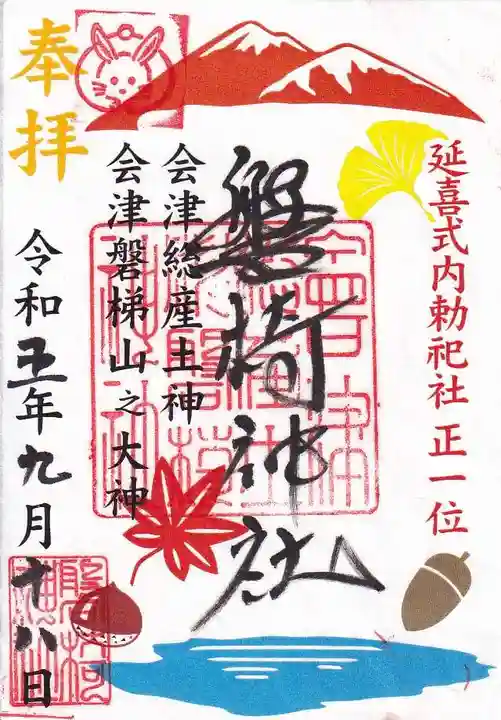 延喜式内勅祀社 正一位
磐椅神社
会津総産土神
会津磐梯山之大神
奉拝
令和五年九月十八日